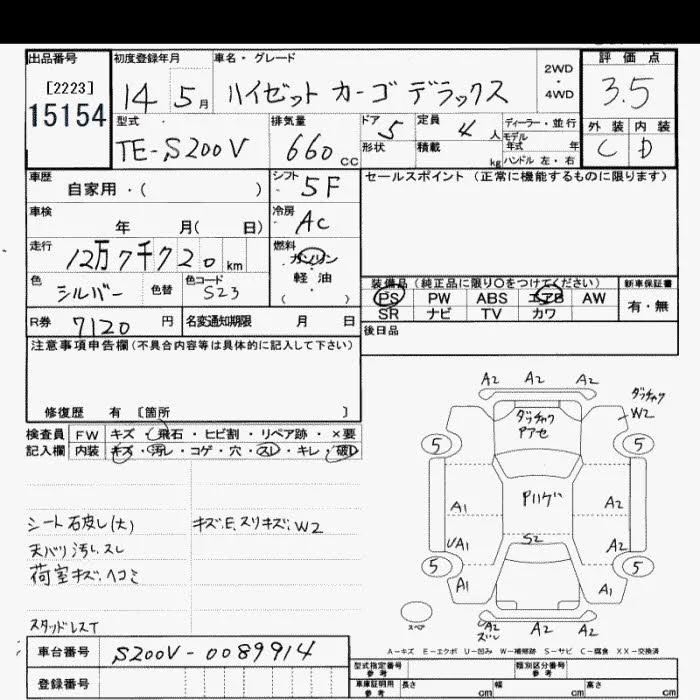 出品番号 初度登録年月 車名・グレード 評価点
[2223] 14 5月 ハイゼット カーゴ デラックス 2WD・4WD 3.5
15154
型式 排気量 ドア 定員 ディーラー・並行 外装 内装
TE-S200V 660cc 5 4人 モデル年式 年 C D
形状 積載 kg ハンドル 左・右
車歴 シフト セールスポイント (正常に機能するものに限ります)
自家用・( ) 5F
車検 冷房
年 月( 日) AC
走行 燃料
12万7千720km ガソリン・軽油 ( )
色 色替 色コード 装備品(純正品に限り○をつけてください) 新車保証書
シルバー S23 PS PW ABS エアB AW 有・無
SR ナビ TV カワ
R券 7120円 名変通知期限 月 日 後日品
注意事項申告欄(不具合内容等は具体的に記入して下さい)
修復歴 有 [箇所 ]
検査員 FW キズ・飛石・ヒビ割・リペア跡・×要
記入欄 内装 キズ・汚レ・コゲ・穴・スレ・キレ・破D
A2 A2 A2
W2
5 5
A1 A2
S2
UA1 A2
5 5
A1 A1
A2 A2 A2
スペア
キズ、E、スリキズ、W2
天バリ汚レ、スレ
荷室キズ、ヘコミ
スタッドレスT
A-キズ E-エクボ U-凹み W-補修跡 S-サビ C-腐食 XX-交換済
車台番号 S200V-0089914
登録番号
型式指定番号 参考 類別区分番号 参考
車庫証明用 参考 長さ cm 幅 cm 高さ cm